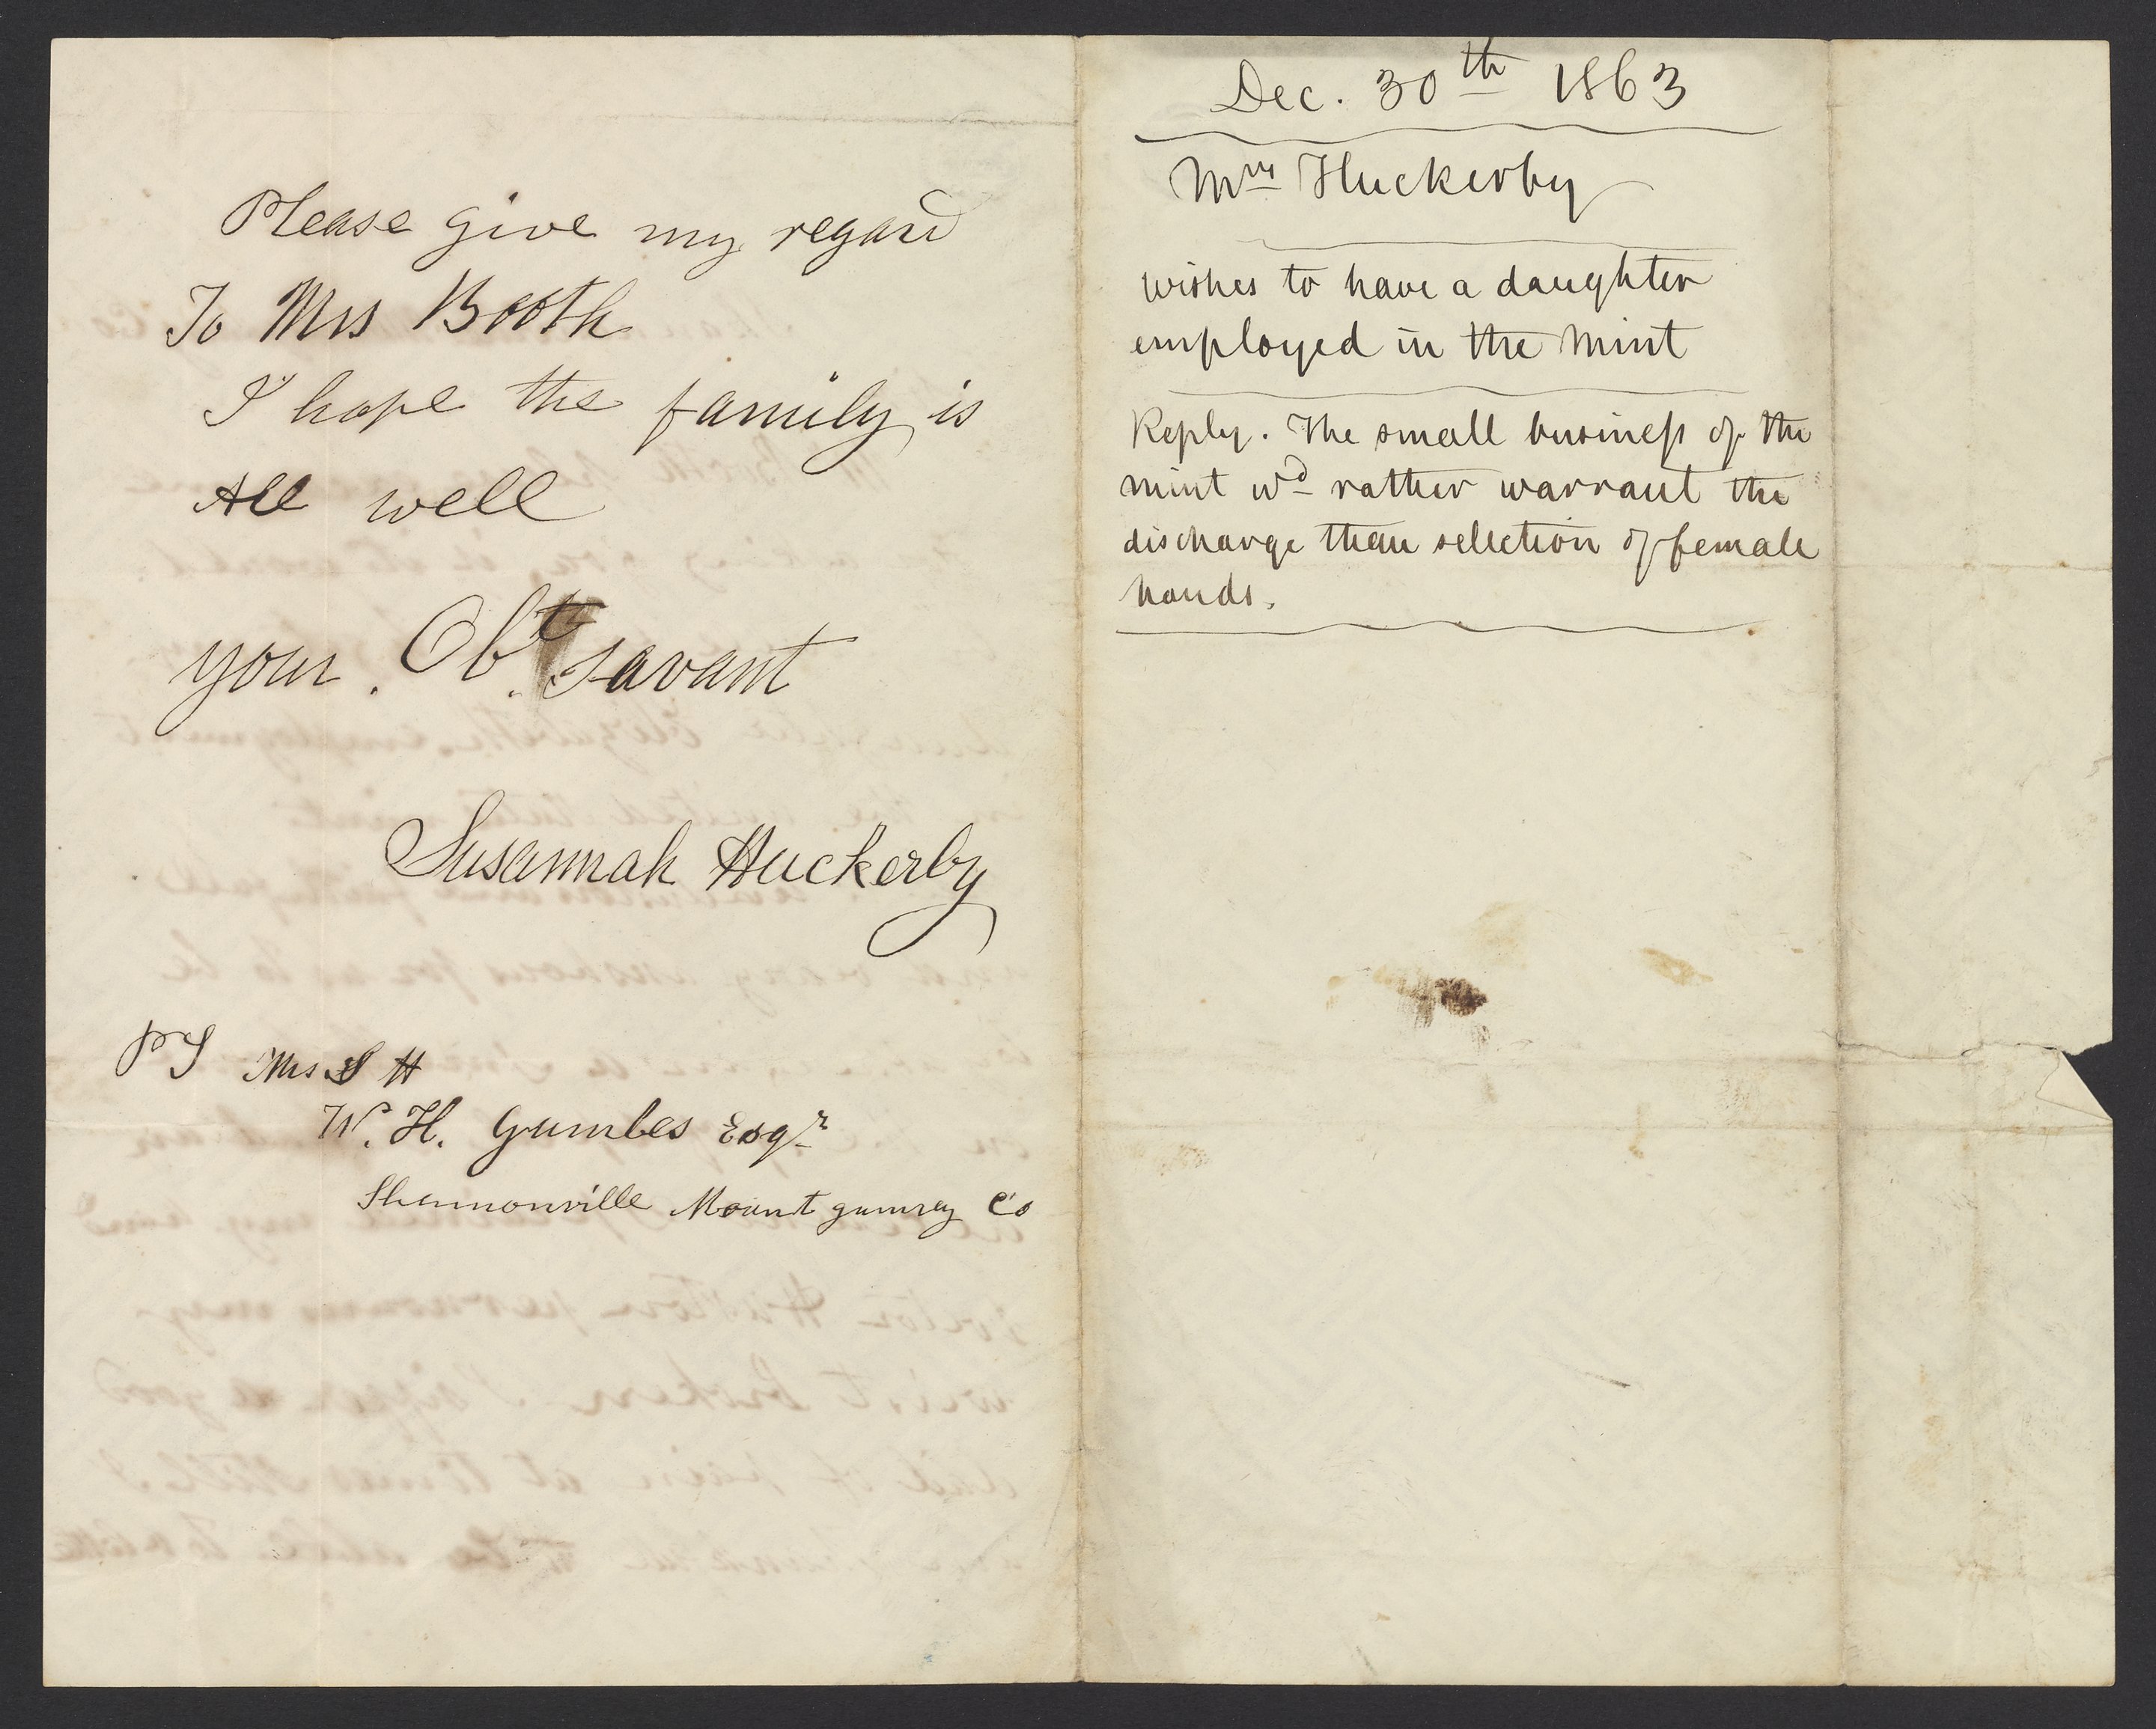 Please give my regard
To Mrs Booth
I hope the family is
All well
your. Obt. savant
Susannah Huckerby
PS Mrs S H
W. H. Gumbes Esqr
Shannonville Mount gumrey Co
Dec. 30th 1863
Mrs Huckerby
wishes to have a daughter
employed in the mint
Reply. The small business of the
mint wd rather warrant the
discharge than selection of female
hands.